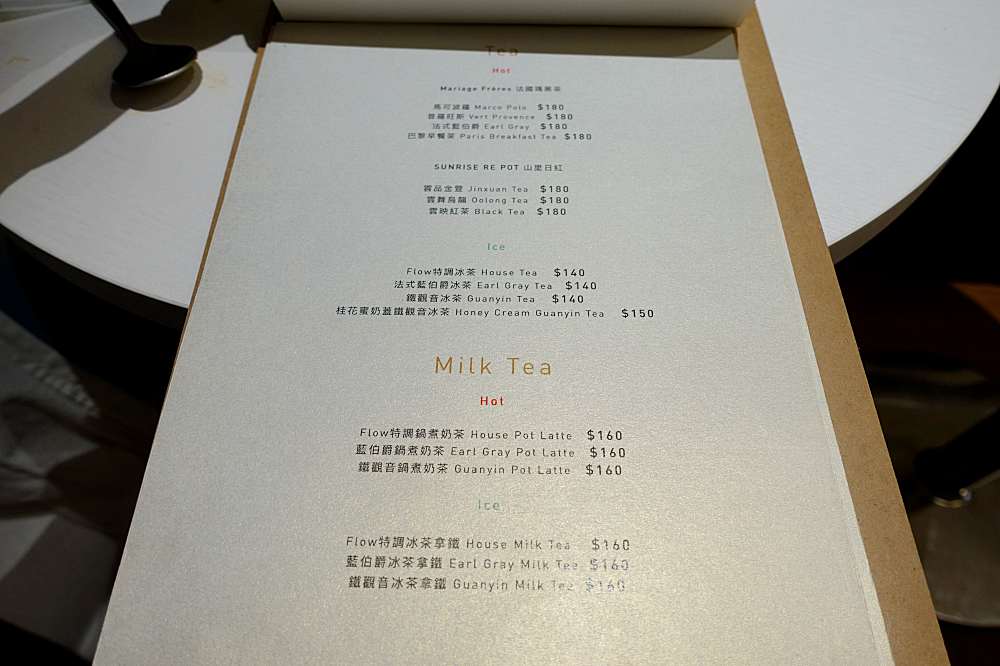 Tea
Hot
Mariage Frères 法國瑪黑茶
馬可波羅 Marco Polo $180
普羅旺斯 Vert Provence $180
法式藍伯爵 Earl Gray $180
巴黎早餐茶 Paris Breakfast Tea $180
SUNRISE RE POT 山里日紅
雲品金萱 Jinxuan Tea $180
雲舞烏龍 Oolong Tea $180
雲映紅茶 Black Tea $180
Ice
Flow特調冰茶 House Tea $140
法式藍伯爵冰茶 Earl Gray Tea $140
鐵觀音冰茶 Guanyin Tea $140
桂花蜜奶蓋鐵觀音冰茶 Honey Cream Guanyin Tea $150
Milk Tea
Hot
Flow特調鍋煮奶茶 House Pot Latte $160
藍伯爵鍋煮奶茶 Earl Gray Pot Latte $160
鐵觀音鍋煮奶茶 Guanyin Pot Latte $160
Ice
Flow特調冰茶拿鐵 House Milk Tea $160
藍伯爵冰茶拿鐵 Earl Gray Milk Tea $160
鐵觀音冰茶拿鐵 Guanyin Milk Tea $160